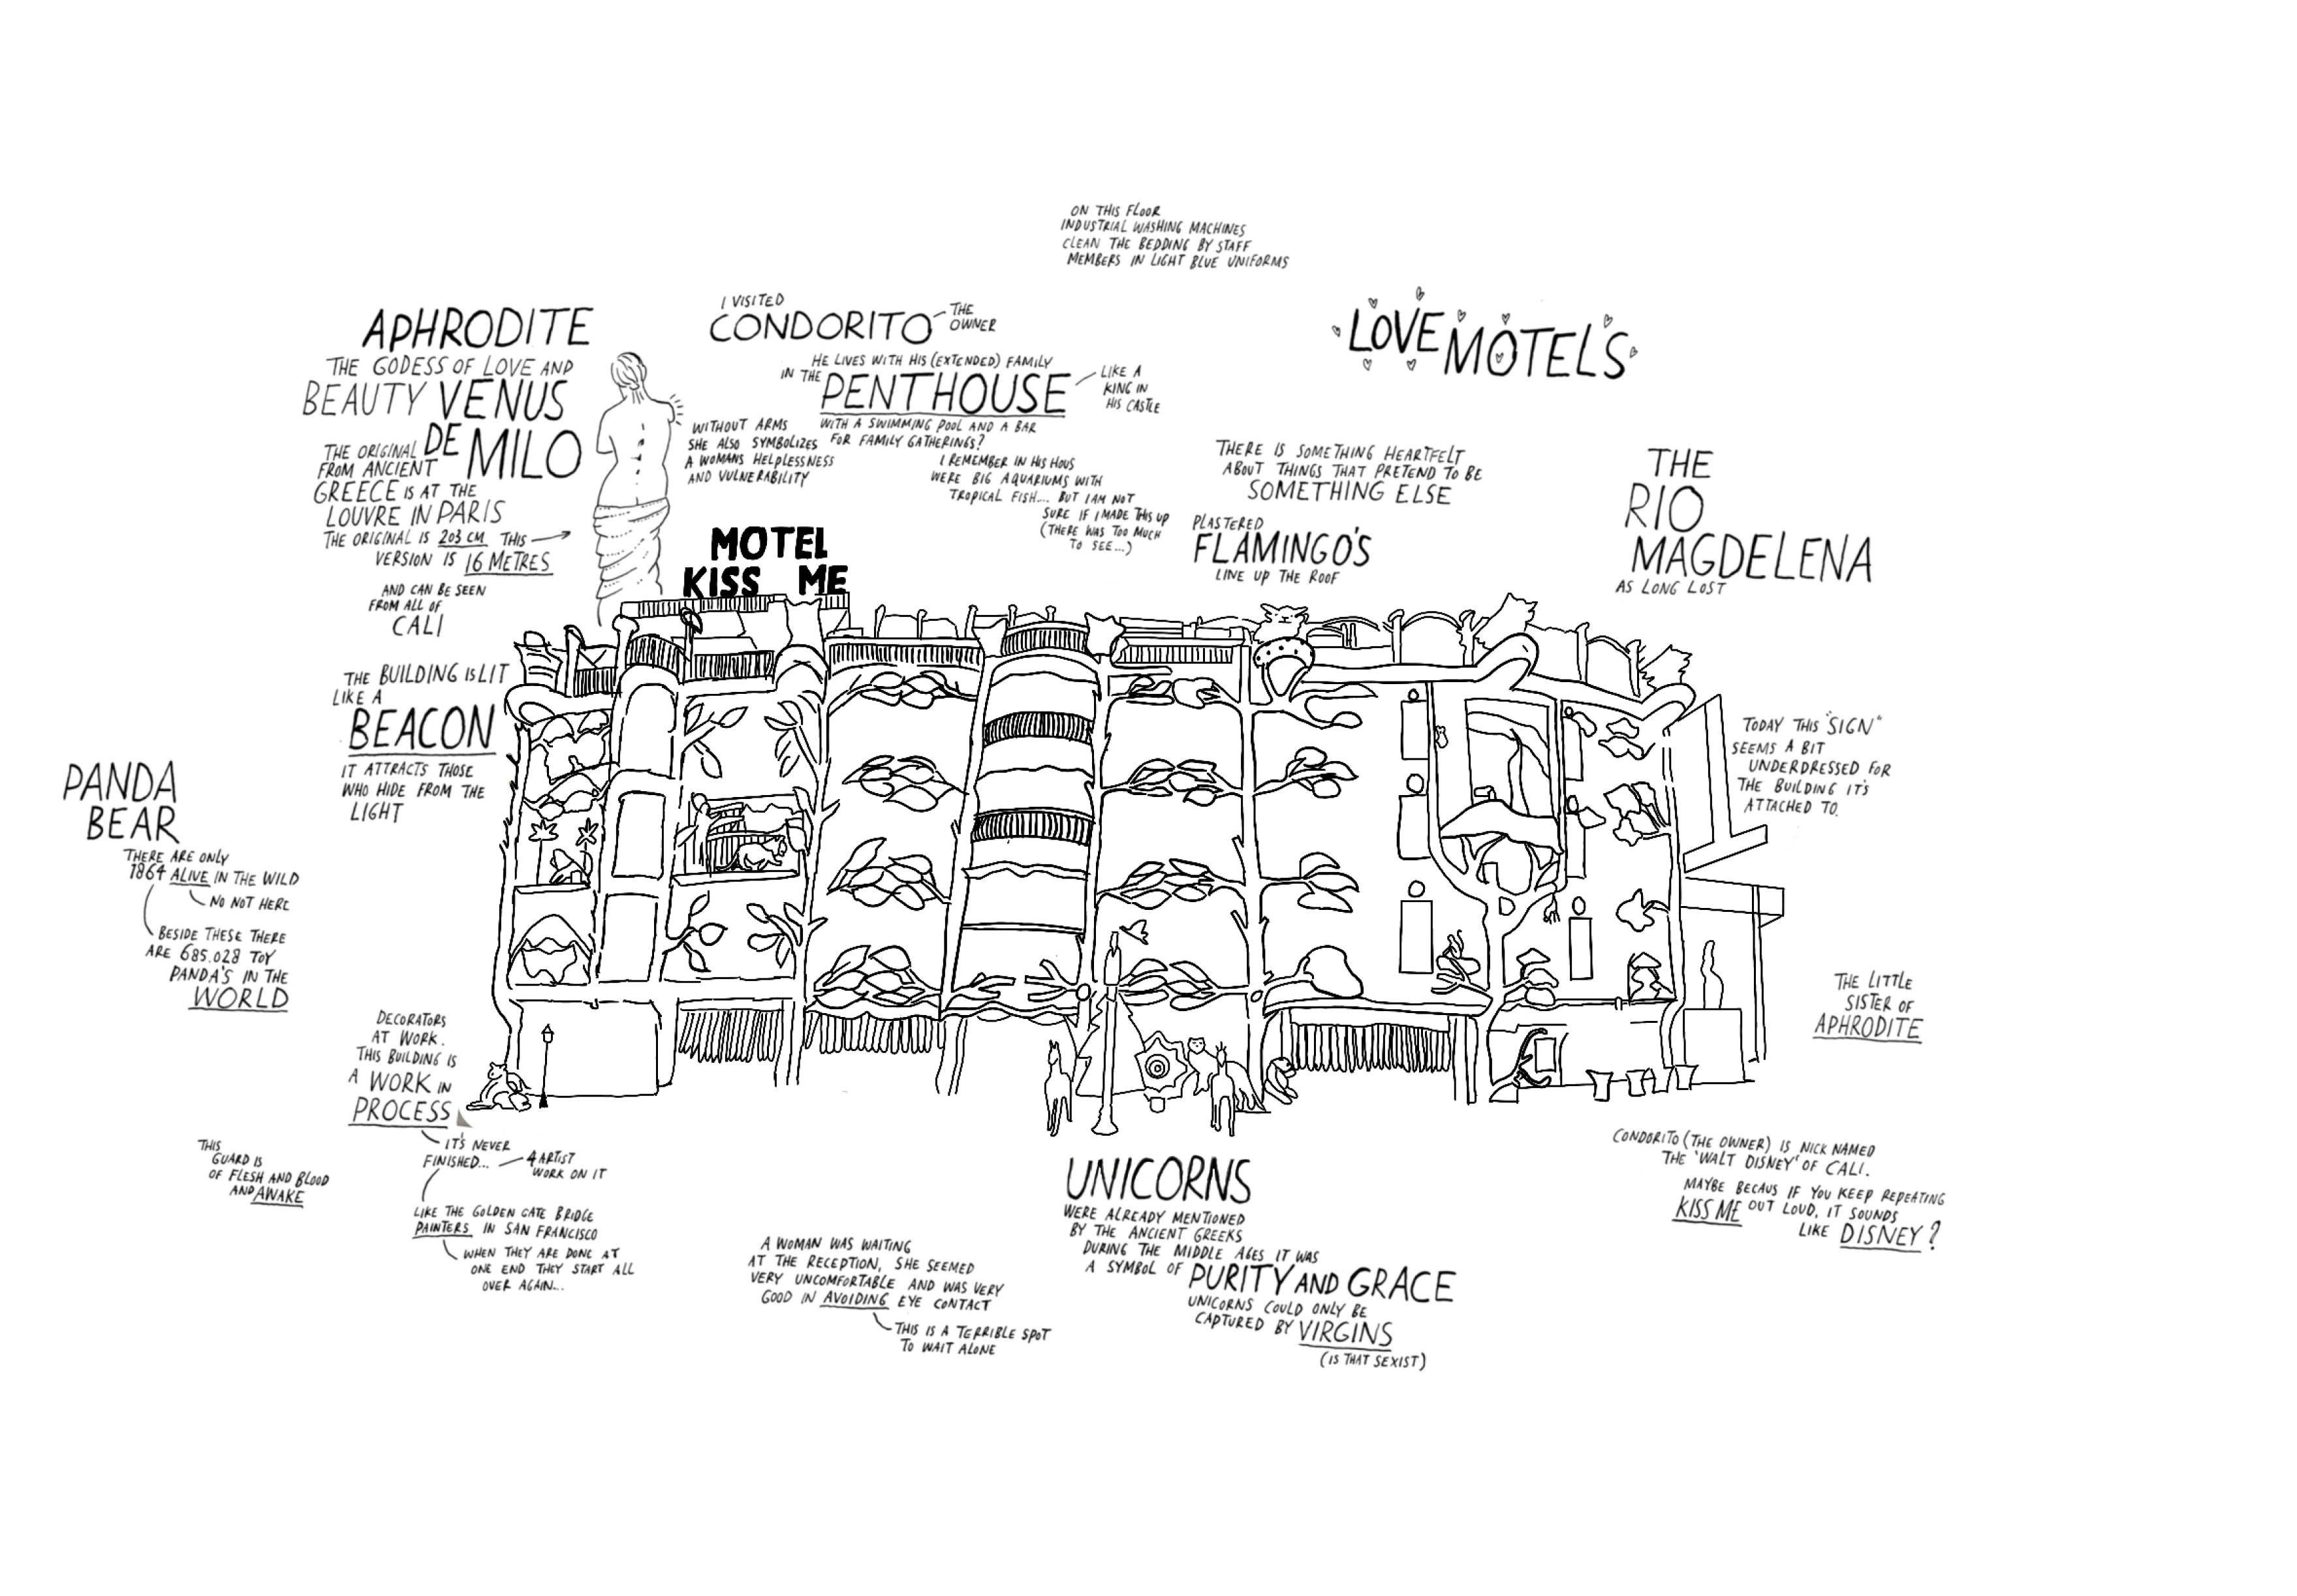 ON THIS FLOOR
INDUSTRIAL WASHING MACHINES
CLEAN THE BEDDING BY STAFF
MEMBERS IN LIGHT BLUE UNIFORMS
APHRODITE
THE GODESS OF LOVE AND
BEAUTY VENUS
DE MILO
THE ORIGINAL
FROM ANCIENT
GREECE IS AT THE
LOUVRE IN PARIS
THE ORIGINAL IS 203 CM THIS
VERSION IS 16 METRES
AND CAN BE SEEN
FROM ALL OF
CALI
WITHOUT ARMS
SHE ALSO SYMBOLIZES
A WOMANS HELPLESSNESS
AND VULNERABILITY
I VISITED
CONDORITO
THE
OWNER
HE LIVES WITH HIS (EXTENDED) FAMILY
IN THE PENTHOUSE
LIKE A
KING IN
HIS CASTLE
WITH A SWIMMING POOL AND A BAR
FOR FAMILY GATHERINGS?
I REMEMBER IN HIS HOUS
WERE BIG AQUARIUMS WITH
TROPICAL FISH.... BUT I AM NOT
SURE IF I MADE THIS UP
(THERE WAS TOO MUCH
TO SEE...)
LOVE MOTELS
THERE IS SOMETHING HEARTFELT
ABOUT THINGS THAT PRETEND TO BE
SOMETHING ELSE
PLASTERED
FLAMINGO'S
LINE UP THE ROOF
THE
RIO
MAGDELENA
AS LONG LOST
MOTEL
KISS ME
THE BUILDING IS LIT
LIKE A
BEACON
IT ATTRACTS THOSE
WHO HIDE FROM THE
LIGHT
TODAY THIS "SIGN"
SEEMS A BIT
UNDERDRESSED FOR
THE BUILDING IT'S
ATTACHED TO.
PANDA
BEAR
THERE ARE ONLY
1864 ALIVE IN THE WILD
NO NOT HERE
BESIDE THESE THERE
ARE 685.028 TOY
PANDA'S IN THE
WORLD
THE LITTLE
SISTER OF
APHRODITE
DECORATORS
AT WORK.
THIS BUILDING IS
A WORK IN
PROCESS
IT'S NEVER
FINISHED...
4 ARTIST
WORK ON IT
LIKE THE GOLDEN GATE BRIDGE
PAINTERS IN SAN FRANCISCO
WHEN THEY ARE DONE AT
ONE END THEY START ALL
OVER AGAIN...
THIS
GUARD IS
OF FLESH AND BLOOD
AND AWAKE
A WOMAN WAS WAITING
AT THE RECEPTION, SHE SEEMED
VERY UNCOMFORTABLE AND WAS VERY
GOOD IN AVOIDING EYE CONTACT
THIS IS A TERRIBLE SPOT
TO WAIT ALONE
UNICORNS
WERE ALREADY MENTIONED
BY THE ANCIENT GREEKS
DURING THE MIDDLE AGES IT WAS
A SYMBOL OF PURITY AND GRACE
UNICORNS COULD ONLY BE
CAPTURED BY VIRGINS
(IS THAT SEXIST)
CONDORITO (THE OWNER) IS NICK NAMED
THE 'WALT DISNEY' OF CALI.
MAYBE BECAUS IF YOU KEEP REPEATING
KISS ME OUT LOUD, IT SOUNDS
LIKE DISNEY?